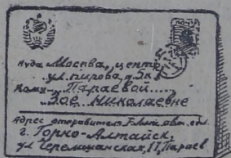 Куда Москва, центр
ул. Кирова, 3а
Кому Параевой
Зое Николаевне
Адрес отправителя
г. Горно-Алтайск
ул. Черемшанская, 17, Параев